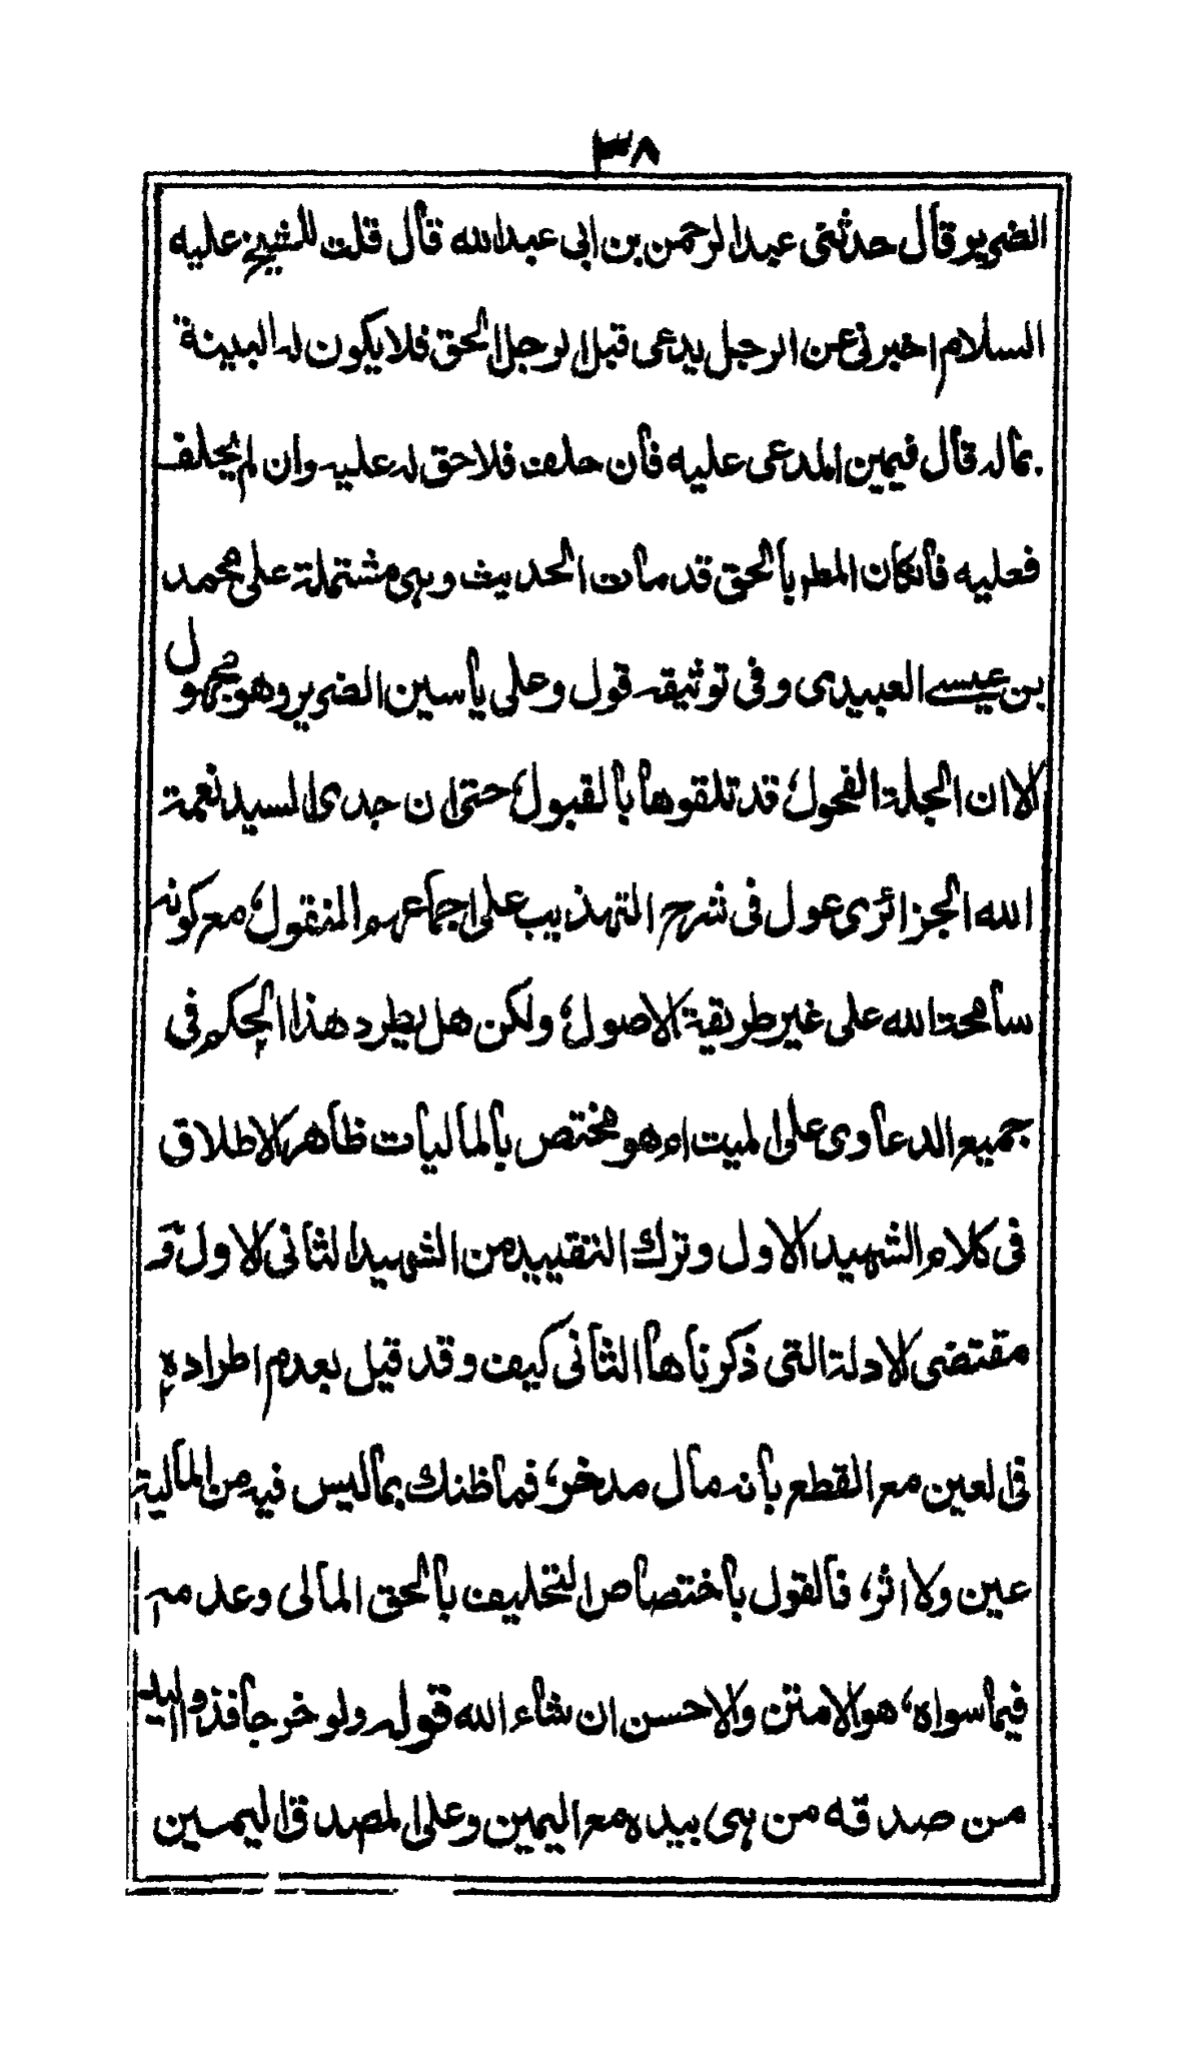 ٣٨
الضرير وقال حدثنى عبدالرحمن بن ابى عبدالله قال قلت للشيخ عليه
السلام اخبرنى عن الرجل يدعى قبل الرجل الحق فلا يكون له البينة
بماله قال فيمين المدعى عليه فأن حلف فلا حق له عليه وان لم يحلف
فعليه فأنكان المطر بالحق قد مات الحديث وهى مشتملة على محمد
بن عيسے العبيدى وفى توثيقه قول وعلى ياسين الضرير وهو مجهول
الا ان الجلة الفحول، قد تلقوها بالقبول، حتى ان جدى السيد نعمة
الله الجزائرى عول فى شرح التهذيب على اجماعهم المنقول، مع كونه
سامحه الله على غير طريقة الاصول، ولكن هل يطرد هذا الحكم فى
جميع الدعاوى على الميت ام هو مختص بالماليات ظاهر الاطلاق
فى كلام الشهيد الاول وترك التقييد من الشهيد الثانى الاول و
مقتضى الادلة التى ذكرناها الثانى كيف وقد قيل بعدم اطراده
فى العين مع القطع بانه مال مدخر، فما ظنك بما ليس فيه من المالية
عين ولا اثر، فالقول باختصاص التحليف بالحق المالى وعدمه
فيما سواه، هو الامتن والاحسن ان شاء الله قوله ولو خرجا فذو اليد
من صدقه من هى بيده مع اليمين وعلى المصدق اليمين